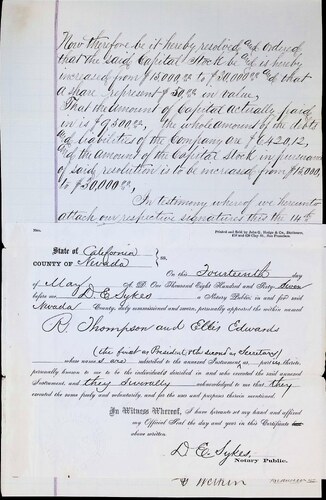 Now therefore be it hereby resolved and ordered
that the said Capital Stock be and is hereby
increased from $15000,00 to $30000,00 and that
a share represent $50,00 in value.
That the amount of Capital actually paid
in is $9500,00, the whole amount of the debts
and liabilities of the Company are $6420,12,
and the amount of the Capital Stock in pursuance
of said resolution is to be increased from $15000,
to $30000,00,
In testimony whereof we hereunto
attach our respective signatures this the 14th
Printed and Sold by John G. Hodge & Co., Stationers,
State of California
COUNTY OF Nevada } ss.
On this Fourteenth day
of May A. D. One Thousand Eight Hundred and Sixty Seven
before me D. E. Sykes a Notary Public, in and for said
Nevada County, duly commissioned and sworn, personally appeared the within named
R. Thompson and Ellis Edwards
(the first as President & the second as Secretary)
whose names are subscribed to the annexed Instrument as parties thereto,
personally known to me to be the individuals described in and who executed the said annexed
Instrument, and they severally acknowledged to me that they
executed the same freely and voluntarily, and for the uses and purposes therein mentioned.
In Witness Whereof, I have hereunto set my hand and affixed
my Official Seal the day and year in this Certificate first
above written.
D. E. Sykes
Notary Public.